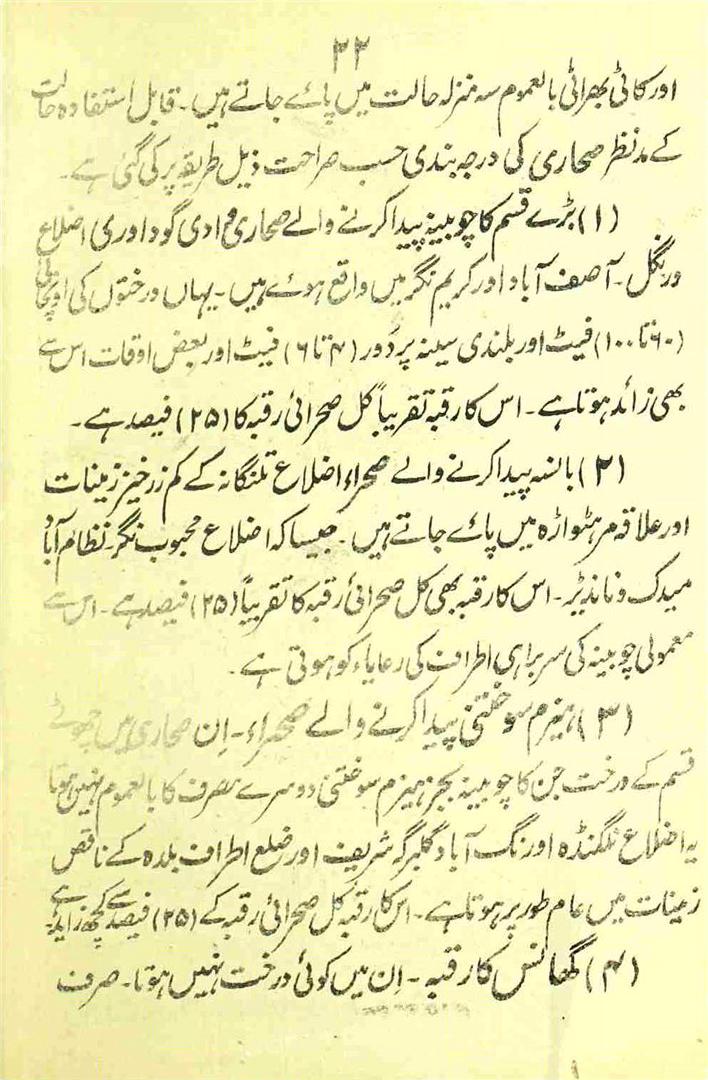 ۲۲
اور کائی بھرائی بالعموم سہ منزلہ حالت میں پائے جاتے ہیں۔ قابل استفادہ حالت
کے مدنظر صحاری کی درجہ بندی حسب صراحت ذیل طریقہ پر کی گئی ہے۔
(۱) بڑے قسم کا چوبینہ پیدا کرنے والے صحاری محاذی گوداوری اضلاع
ورنگل۔ آصف آباد اور کریم نگر میں واقع ہوئے ہیں۔ یہاں درختوں کی اونچائی
(۶۰ تا ۱۰۰) فیٹ اور بلندی سینہ پر دَور (۴ تا ۶) فیٹ اور بعض اوقات اس سے
بھی زائد ہوتا ہے۔ اس کا رقبہ تقریباً کل صحرائی رقبہ کا (۲۵) فیصد ہے۔
(۲) بانسہ پیدا کرنے والے صحراء اضلاع تلنگانہ کے کم زرخیز زمینات
اور علاقہ مرہٹواڑہ میں پائے جاتے ہیں۔ جیسا کہ اضلاع محبوب نگر۔ نظام آباد
میدک و ناندیڑ۔ اس کا رقبہ بھی کل صحرائی رقبہ کا تقریباً (۲۵) فیصد ہے۔ اس سے
معمولی چوبینہ کی سربراہی اطراف کی رعایاء کو ہوتی ہے۔
(۳) ہیزم سوختنی پیدا کرنے والے صحراء۔ اِن صحاری میں چھوٹے
قسم کے درخت جن کا چوبینہ بجز ہیزم سوختنی دوسرے مصرف کا بالعموم نہیں ہوتا
یہ اضلاع نلگنڈہ اورنگ آباد گلبرگہ شریف اور ضلع اطراف بلدہ کے ناقص
زمینات میں عام طور پر ہوتا ہے۔ اس کا رقبہ کل صحرائی رقبہ کے (۲۵) فیصد سے کچھ زاید ہے۔
(۴) گھانس کا رقبہ۔ اِن میں کوئی درخت نہیں ہوتا۔ صرف